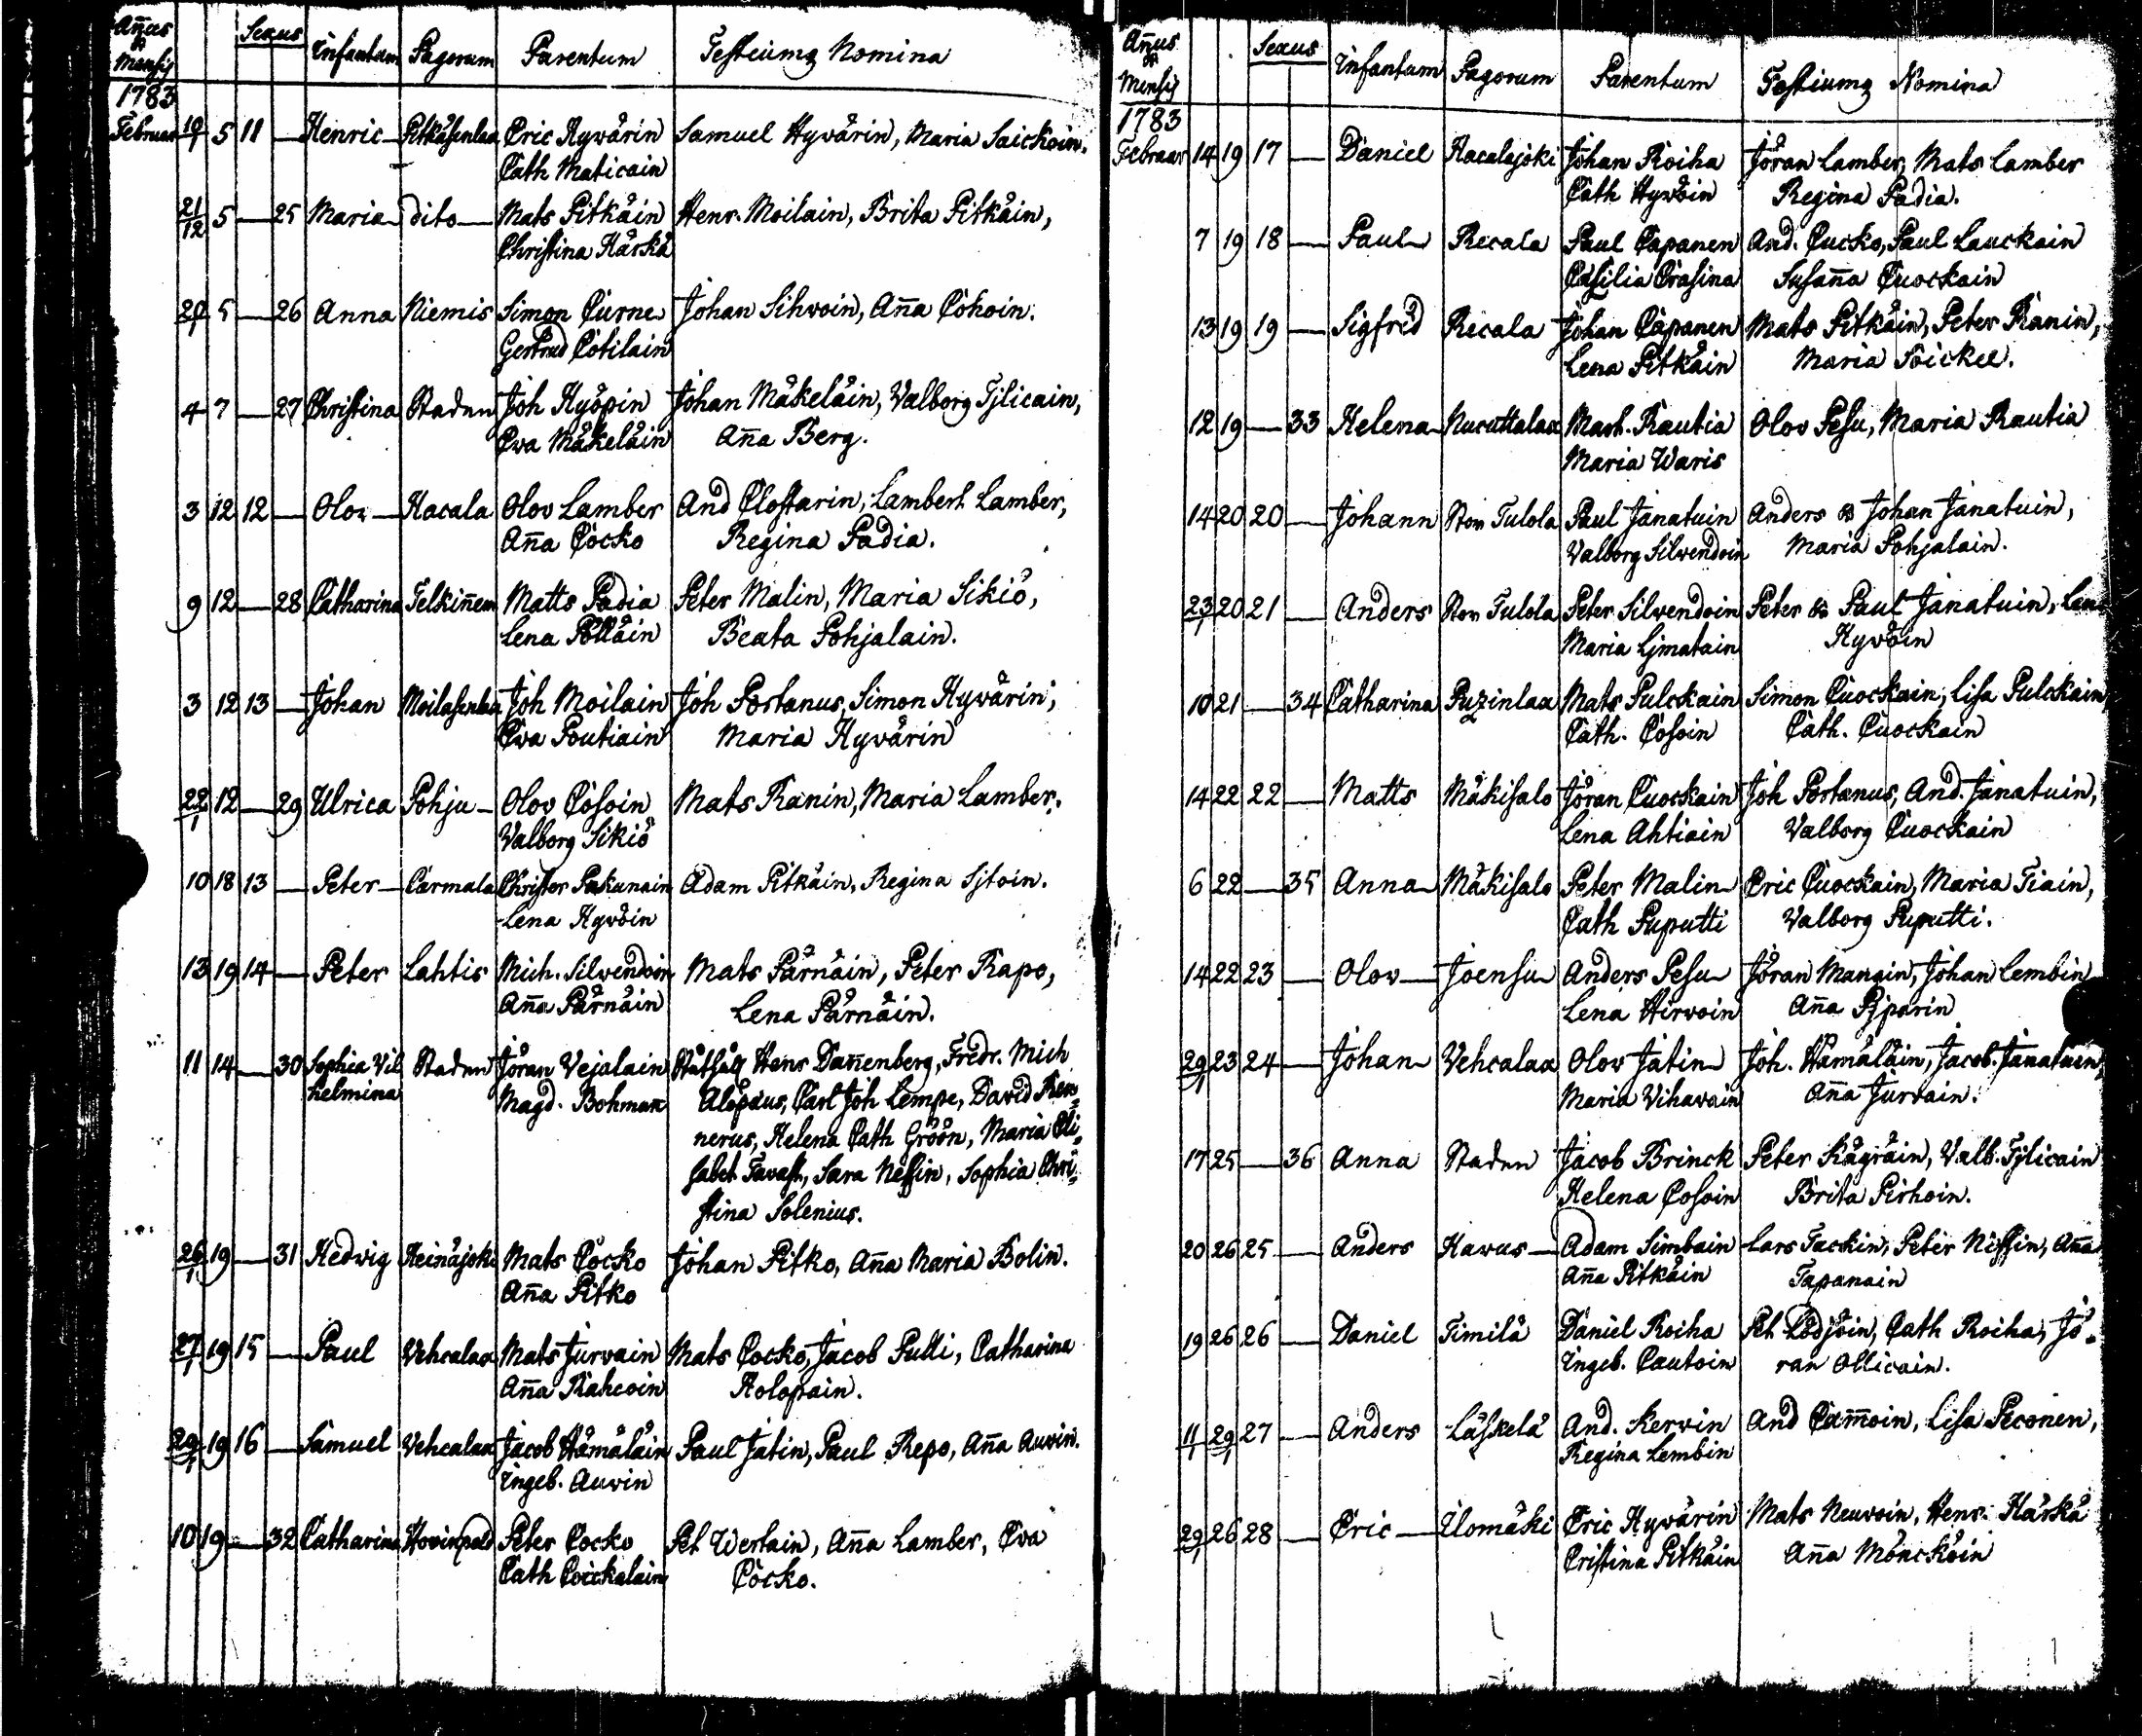 Añus & Mensis Sexus Infantum Pagorum Parentum Testiumq Nomina
1783
Februar 19/1 5 11 — Henric Pitkäsenlax Eric Hyvärin Samuel Hyvärin, Maria Saickoin.
Cath Maticain
21/12 5 — 25 Maria dito Mats Pitkäin Henr. Moilain, Brita Pitkäin,
Christina Härkä
29/1 5 — 26 Anna Niemis Simon Curne Johan Sihvoin, Aña Cohoin.
Gertrud Cotilain
4 7 — 27 Christina Staden Joh Hyöpin Johan Mäkeläin, Valborg Tjlicain,
Eva Mäkeläin Aña Berg.
3 12 12 — Olov Hacala Olov Lamber And Clostarin, Lambert Lamber,
Aña Cocko Regina Padia.
9 12 — 28 Catharina Telkiñem Matts Padia Peter Malin, Maria Sikiö,
Lena Pölläin Beata Pohjalain.
3 12 13 — Johan Moilasenlax Joh Moilain Joh Portanus, Simon Hyvärin,
Eva Poutiain Maria Hyvärin
22/1 12 — 29 Ulrica Pohju Olov Cosoin Mats Ranin, Maria Lamber.
Valborg Sikiö
10 18 13 — Peter Carmala Christer Pakunain Adam Pitkäin, Regina Sjtoin.
Lena Hyvöin
13 19 14 — Peter Lahtis Mich. Silvendoin Mats Pärnäin, Peter Rapo,
Aña Pärnäin Lena Pärnäin.
11 14 — 30 Sophia Vil Staden Jöran Vejalain Henr Dañenberg, Fredr. Mich
helmina Magd. Bohman Alopæus, Carl Joh Lempe, David Ren-
nerus, Helena Cath Gröön, Maria Eli-
sabet Tavast, Sara Nessin, Sophia Chri-
stina Solenius.
26/1 19 — 31 Hedvig Heinäjoki Mats Cocko Johan Pitko, Aña Maria Bolin.
Aña Pitko
27/1 19 15 — Paul Vehcalax Mats Jurvain Mats Cocko, Jacob Pulli, Catharina
Aña Rahcoin Holopain.
29/1 19 16 — Samuel Vehcalax Jacob Hämäläin Paul Jatin, Paul Repo, Aña Auvin.
Ingeb. Auvin
10 19 — 32 Catharina Hovinpold Peter Cocko Pet Wertain, Aña Lamber, Eva
Cath Coickalain Cocko.
Añus & Mensis Sexus Infantum Pagorum Parentum Testiumq Nomina
1783
Februar 14 19 17 — Daniel Hacalajoki Johan Roiha Jöran Lamber, Mats Lamber
Cath Hyvöin Regina Padia.
7 19 18 — Paul Recala Paul Capanen And. Cucko, Paul Lauckain
Casilia Erasina Susaña Cuockain
13 19 19 — Sigfrid Recala Johan Capanen Mats Pitkäin, Peter Ranin,
Lena Pitkäin Maria Poickel.
12 19 — 33 Helena Nucuttalax Mart. Rautia Olov Pesu, Maria Rautia
Maria Waris
14 20 20 — Johann Stor Tulola Paul Janatuin Anders & Johan Janatuin,
Valborg Silvendoin Maria Pohjalain.
23/1 20 21 — Anders Stor Tulola Peter Silvendoin Peter & Paul Janatuin, Lena
Maria Ljmatain Hyvöin
10 21 — 34 Catharina Puzinlax Mats Pulckain Simon Cuockain, Lisa Pulckain
Cath. Cosoin Cath. Cuockain
14 22 22 — Matts Mäkisalo Jöran Cuockain Joh Portanus, And. Janatuin,
Lena Ahtiain Valborg Cuockain
6 22 — 35 Anna Mäkisalo Peter Malin Eric Cuockain, Maria Tiain,
Cath Puputti Valborg Puputti.
14 22 23 — Olov Joensu Anders Pesu Jöran Mangin, Johan Lembin
Lena Hirvoin Aña Pjparin
29/1 23 24 — Johan Vehcalax Olov Jatin Joh. Hämäläin, Jacob. Janatuin,
Maria Vihavain Aña Jurvain.
17 25 — 36 Anna Staden Jacob Brinck Peter Kägräin, Valb. Tjlicain
Helena Cosoin Brita Pirhoin.
20 26 25 — Anders Havus Adam Simbain Lars Tackin, Peter Nissin, Aña
Aña Pitkäin Tapanain
19 26 26 — Daniel Timilä Daniel Roiha Pet Lödjöin, Cath Roiha, Jö-
Ingeb. Cautoin ran Ollicain.
11 29/1 27 — Anders Läskelä And. Kervin And Cam̄oin, Lisa Peconen,
Regina Lembin
29/1 26 28 — Eric Ulomäki Eric Hyvärin Mats Neuvoin, Henr. Härkä
Cristina Pitkäin Aña Möncköin